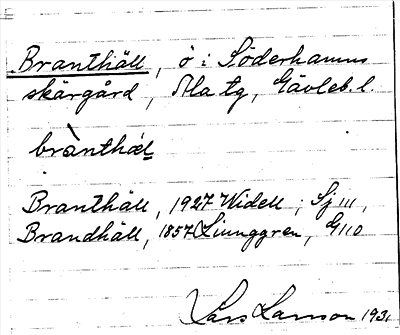 Branthäll, ö i Söderhamns
skärgård, Ala tg, Gävleb. l.
brànthæl
Branthäll, 1927 Widell; Sj 111,
Brandhäll, 1857 Ljunggren, G110
Lars Larsson 1931